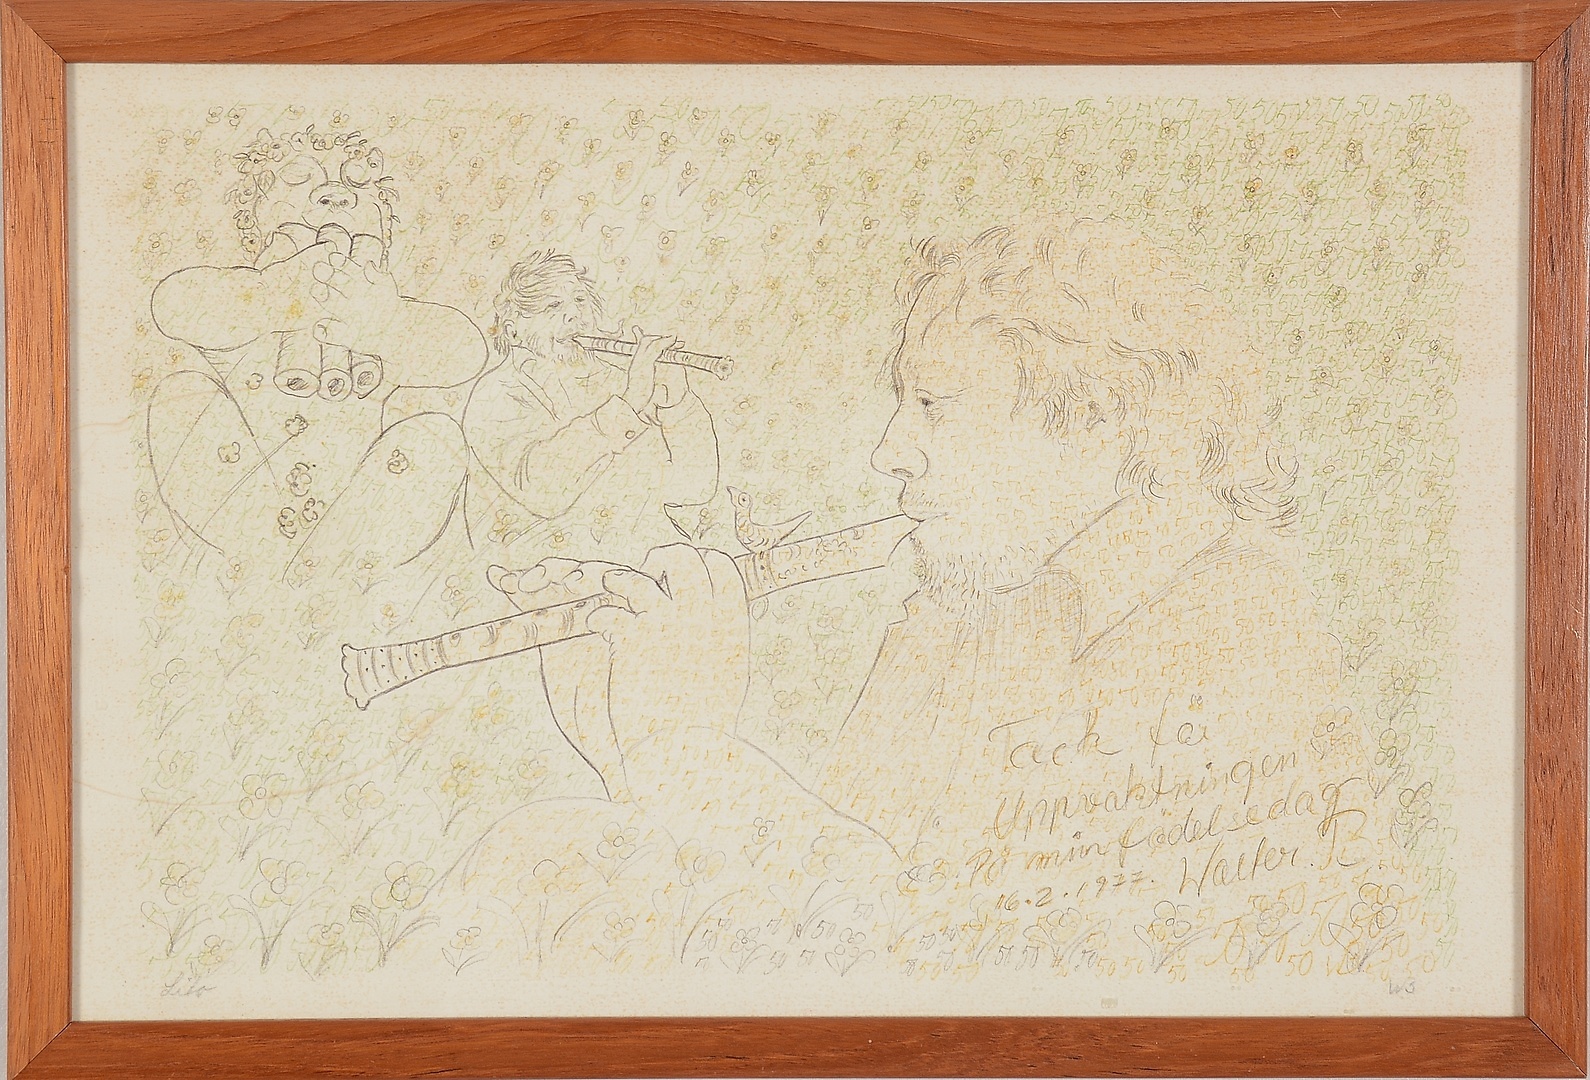 Tack för
Uppvaktningen
På min födelsedag
16.2.1977. Walter.
Lito WS
50 50 50 50 50